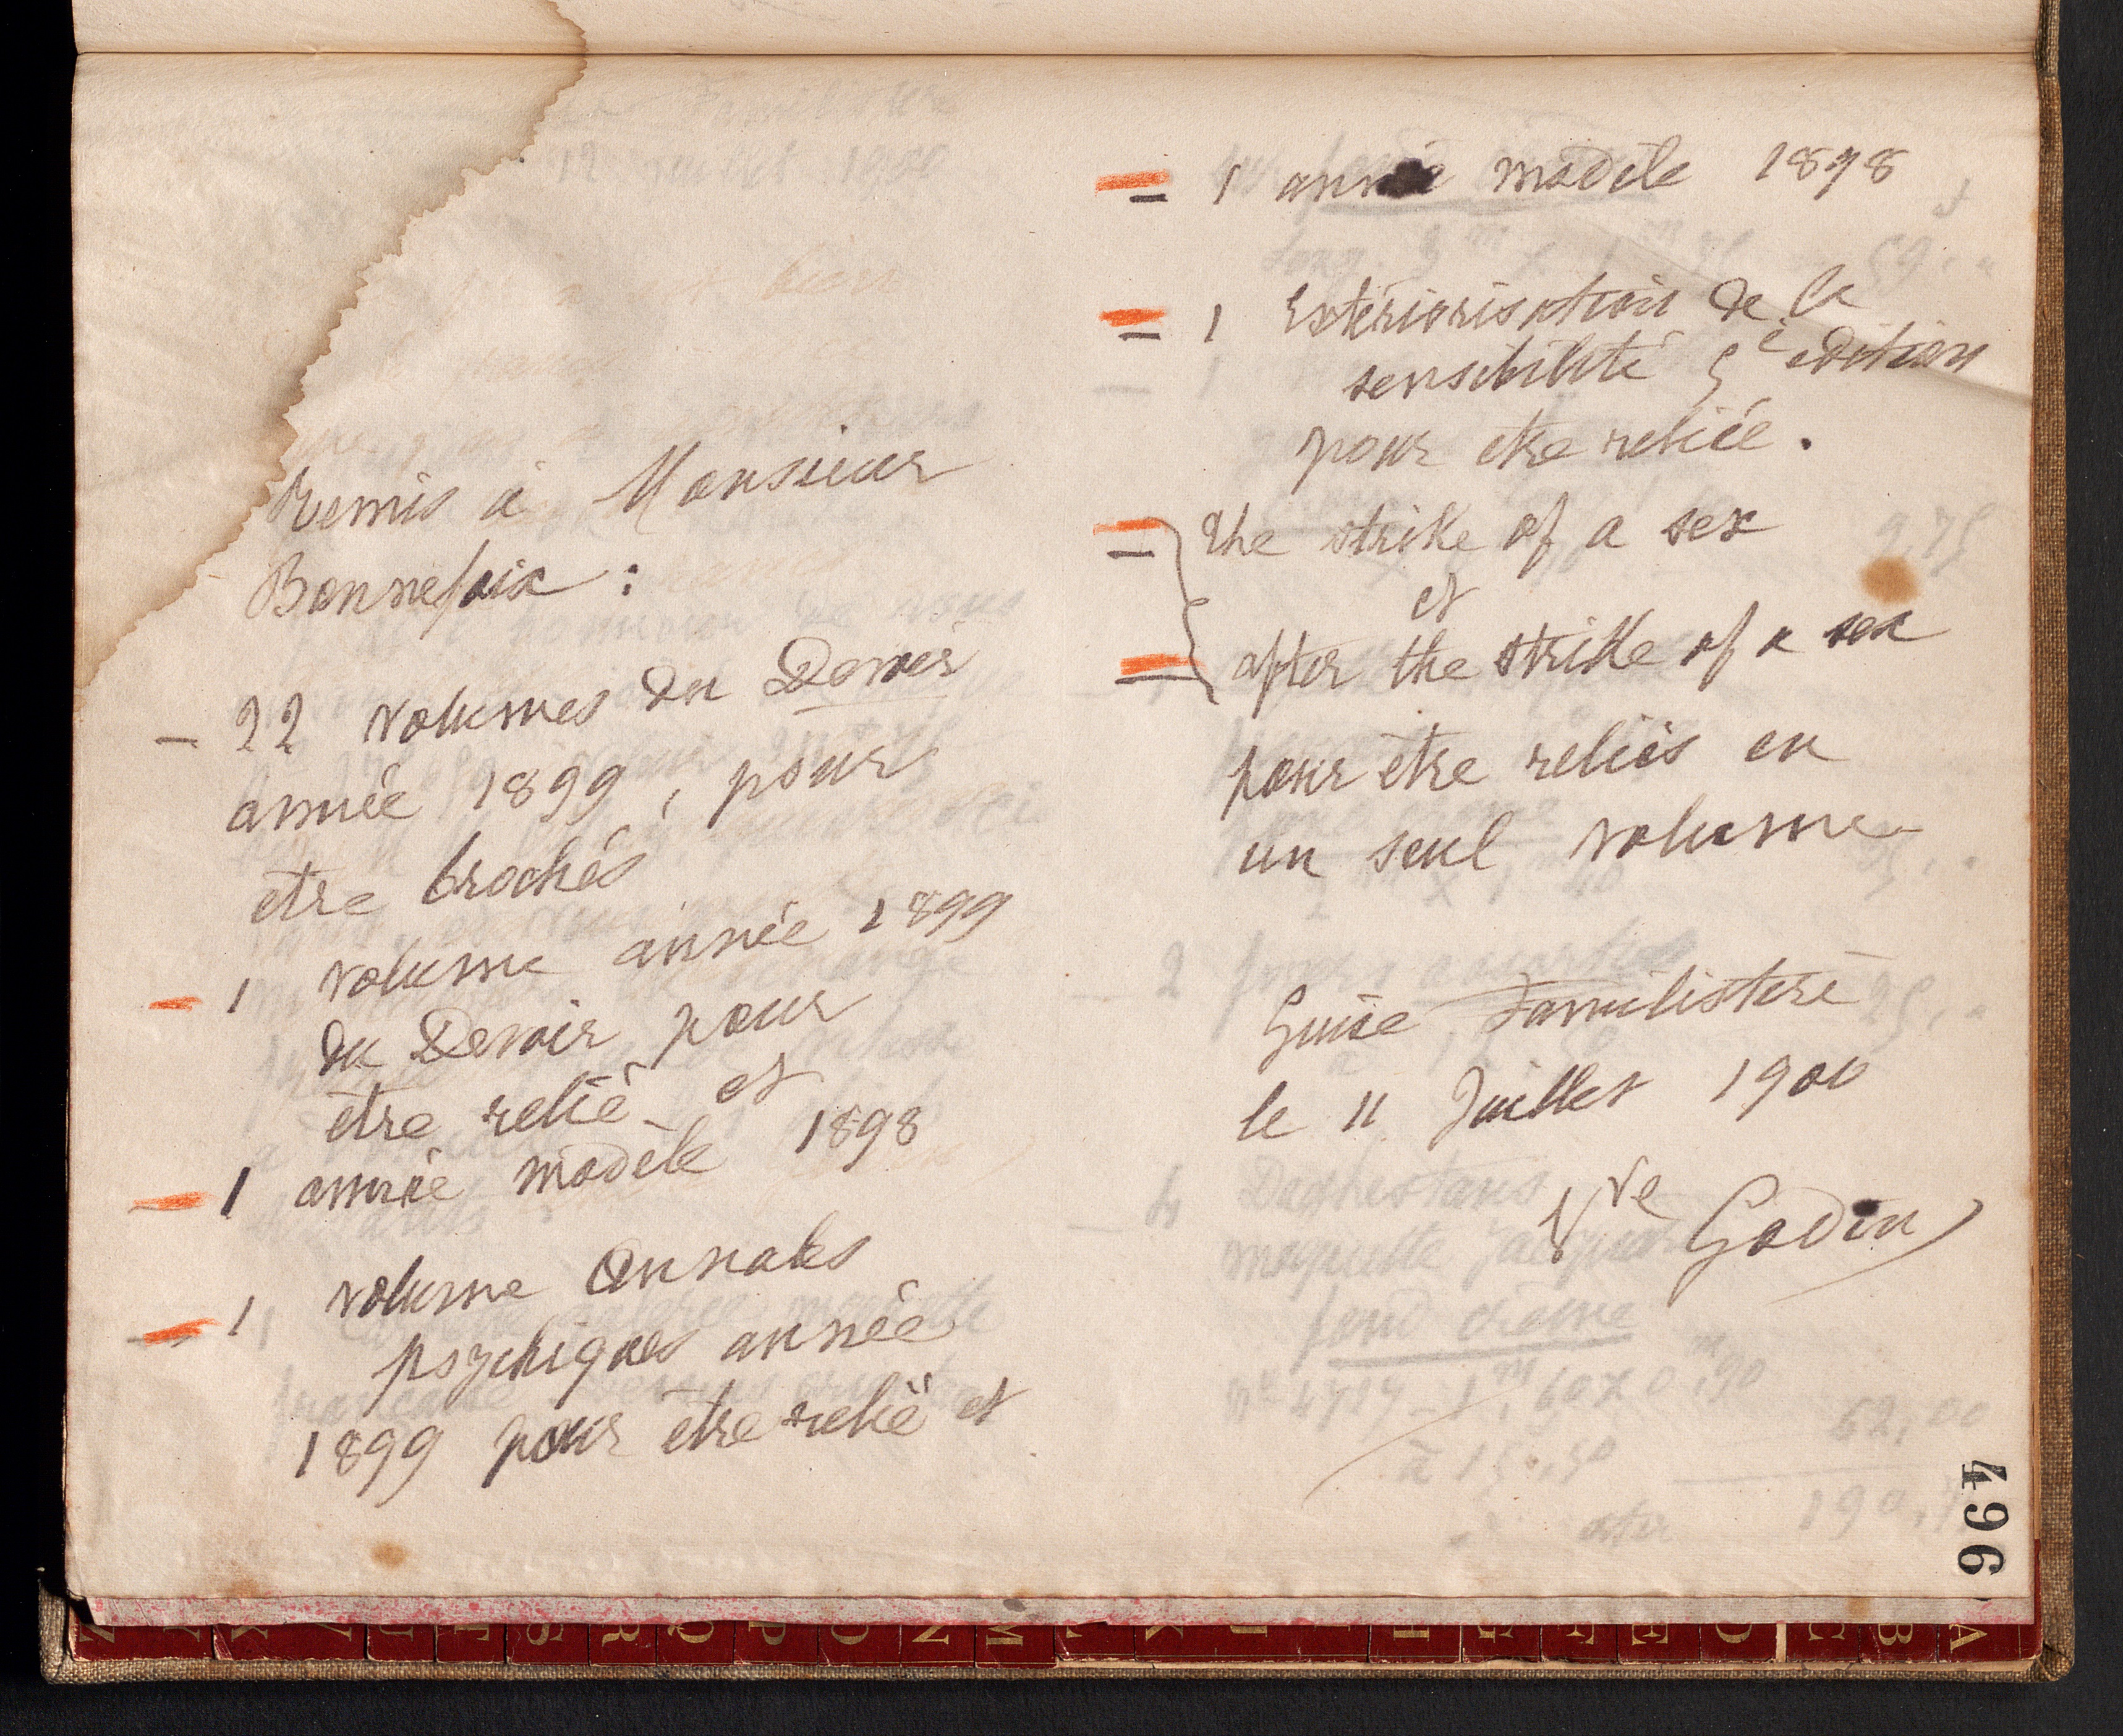 Remis à Monsieur
Bonnefoix :
— 22 volumes du Devoir
année 1899, pour
etre brochés
— 1 volume année 1899
du Devoir pour
être relié et
— 1 année modèle 1898
— 1 volume Annales
psychiques année
1899 pour être relié et
— 1 année modèle 1898
— 1 Extériorisation de la
sensibilité 5e edition
pour etre reliée.
— the strike of a sex
et
— after the strike of a sex
pour être reliés en
un seul volume
Guise Familistère
le 11 Juillet 1900
Vve Godin
496
Z Y X V U T S R Q P O N M L K J I H G F E D C B A